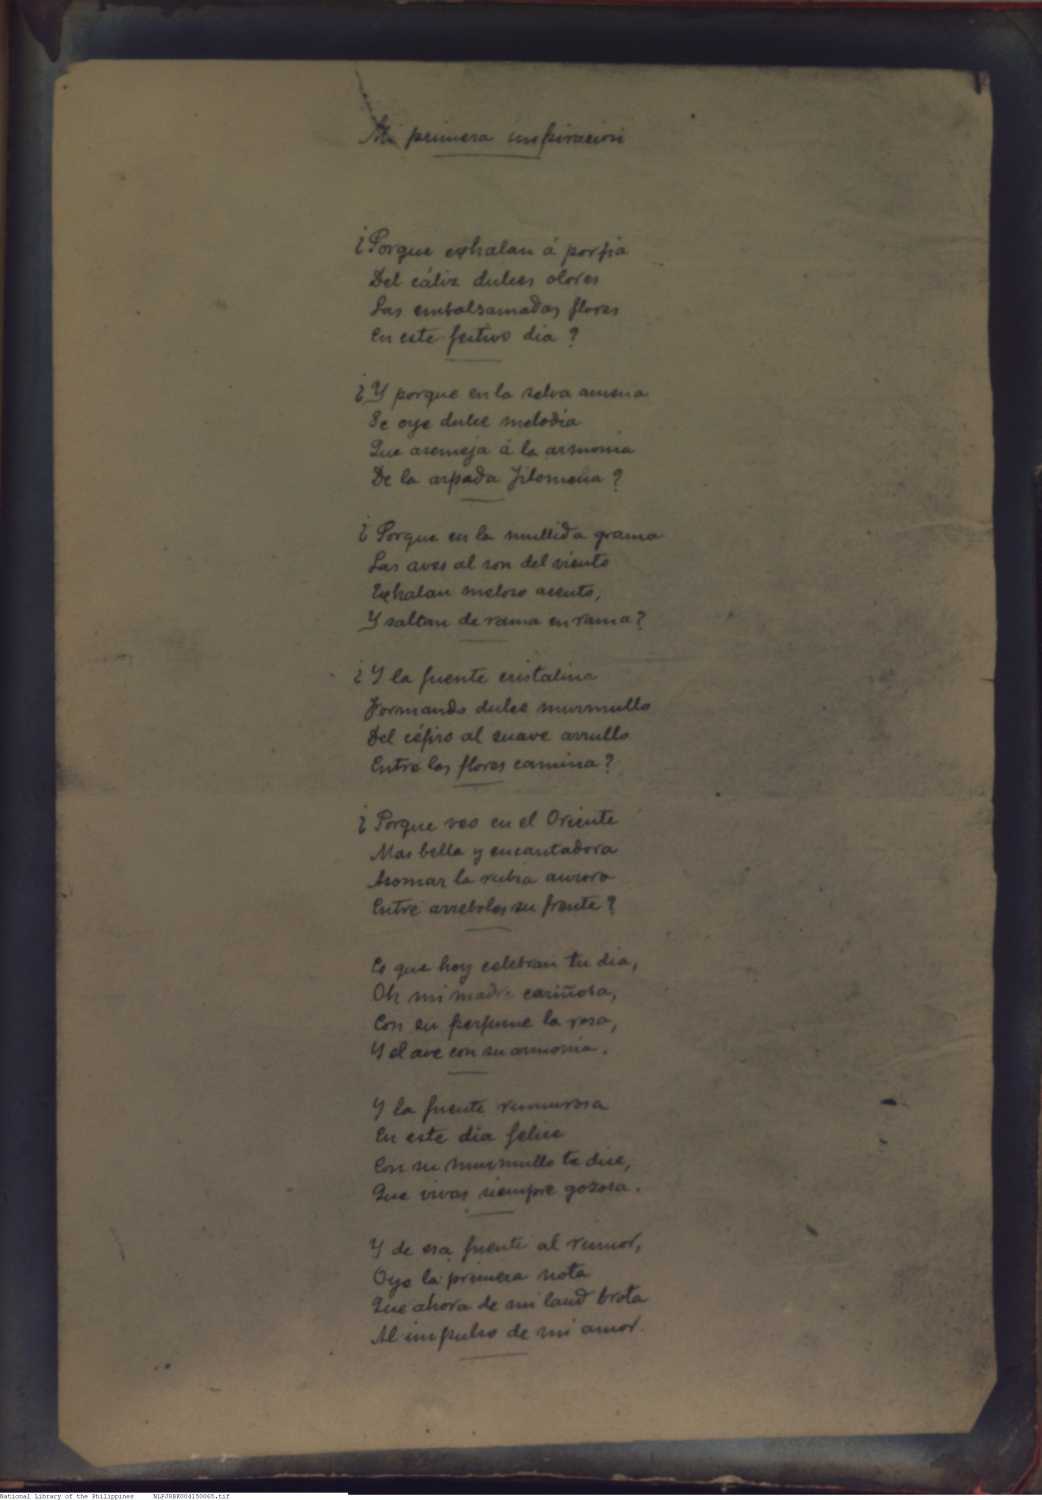 Mi primera inspiracion
¿Porque exhalan á porfia
Del cáliz dulces olores
Las embalsamadas flores
En este festivo dia?
¿Y porque en la selva amena
Se oye dulce melodia
Que asemeja á la armonia
De la arpada Filomena?
¿Porque en la mullida grama
Las aves al son del viento
Exhalan meloso acento,
Y saltan de rama en rama?
¿Y la fuente cristalina
Formando dulce murmullo
Del céfiro al suave arrullo
Entre las flores camina?
¿Porque veo en el Oriente
Mas bella y encantadora
Asomar la rubia aurora
Entre arreboles su frente?
Es que hoy celebran tu dia,
Oh mi madre cariñosa,
Con su perfume la rosa,
Y el ave con su armonia.
Y la fuente rumurosa
En este dia felice
Con su murmullo te dice,
Que vivas siempre gozosa.
Y de esa fuente al rumor,
Oye la primera nota
Que ahora de mi laud brota
Al impulso de mi amor.
National Library of the Philippines NLPJRBK004150065.tif